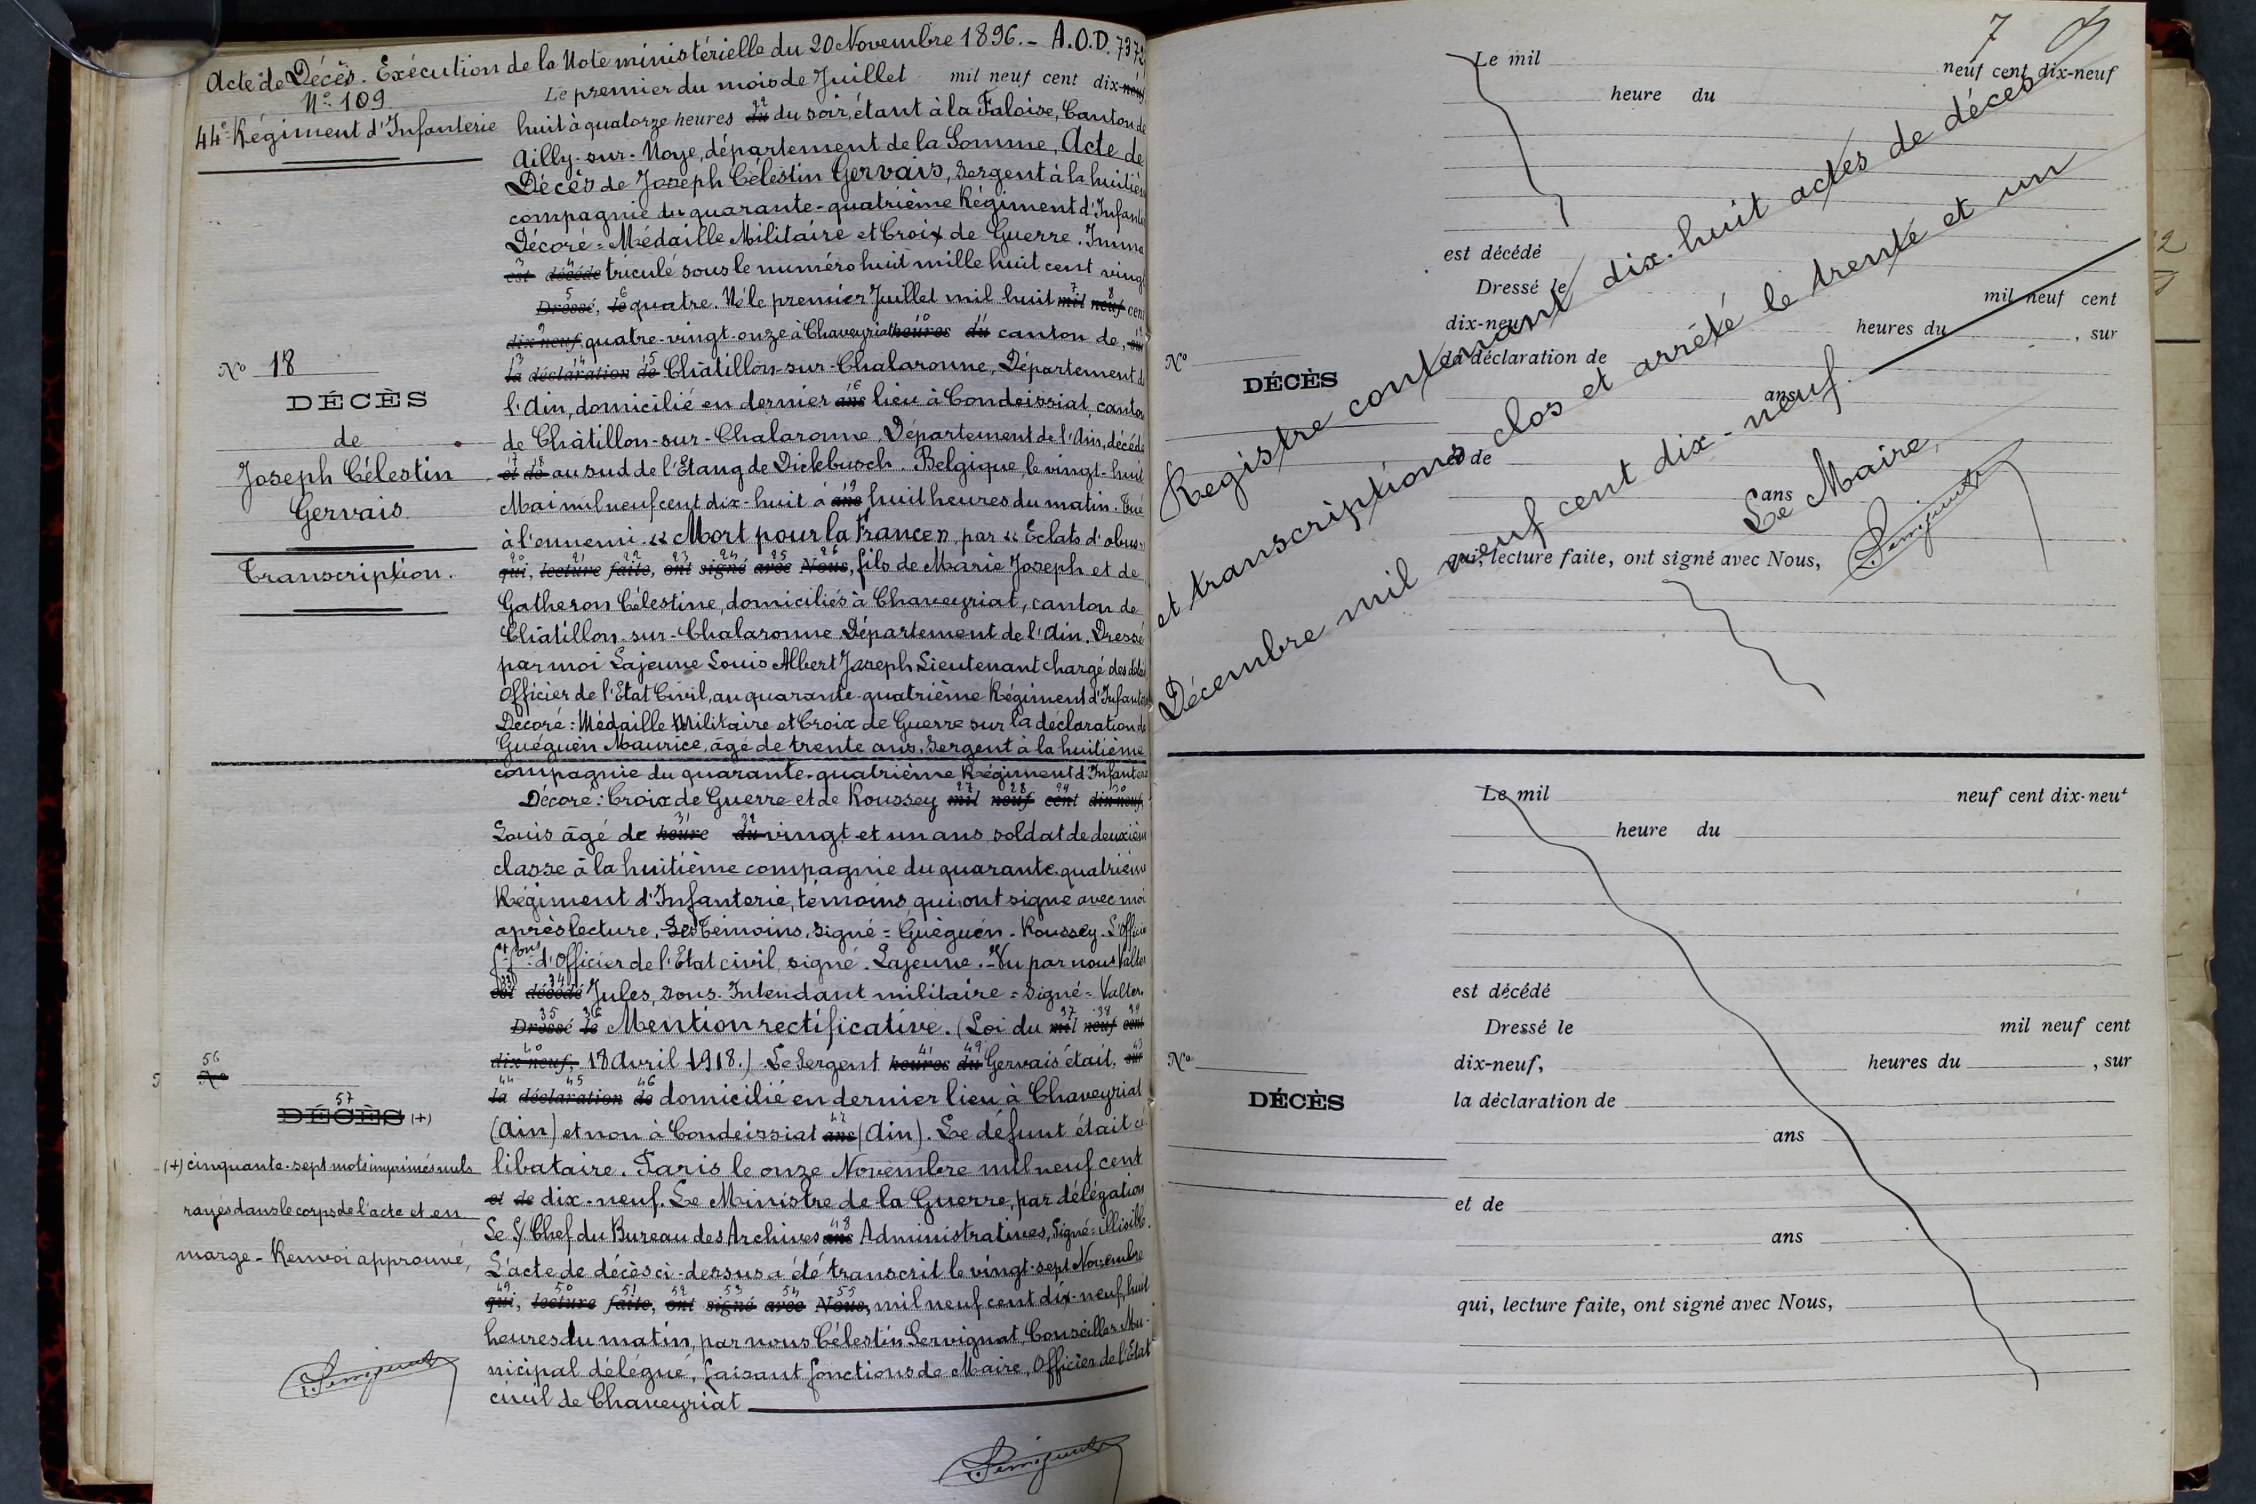 Acte de Décès. Exécution de la Note ministérielle du 20 Novembre 1896. - A.O.D. 7372
N° 109
44e Régiment d'Infanterie
N° 18
DÉCÈS
de
Joseph Célestin
Gervais
Transcription.
Le premier du mois de Juillet mil neuf cent dix-neuf
huit à quatorze heures du du soir, étant à la Faloise, Canton de
Ailly-sur-Noye, département de la Somme, Acte de
Décès de Joseph Célestin Gervais, Sergent à la huitième
compagnie du quarante-quatrième Régiment d'Infante
Décoré = Médaille Militaire et Croix de Guerre. Imma
est décédé triculé sous le numéro huit mille huit cent vingt
Dressé, le quatre. Né le premier Juillet mil huit mil neuf cent
dix-neuf, quatre-vingt-onze à Chaveyriat heures du canton de, sur
la déclaration de Châtillon-sur-Chalaronne, Département de
l'Ain, domicilié en dernier ans lieu à Condeissiat, canton
de Châtillon-sur-Chalaronne. Département de l'Ain, décédé
et de au sud de l'Etang de Dickbusch. Belgique, le vingt-huit
Mai mil neuf cent dix-huit à ans huit heures du matin. Tué
à l'ennemi. « Mort pour la France », par « Eclats d'obus »
qui, lecture faite, ont signé avec Nous, fils de Marie Joseph et de
Gatheron Célestine, domiciliés à Chaveyriat, canton de
Châtillon-sur-Chalaronne Département de l'Ain. Dressé
par moi Lajeune Louis Albert Joseph Lieutenant chargé des détails
Officier de l'Etat Civil, au quarante-quatrième Régiment d'Infanterie
Décoré : Médaille Militaire et Croix de Guerre sur la déclaration de
Guéguen Maurice, âgé de trente ans, Sergent à la huitième
compagnie du quarante-quatrième Régiment d'Infanterie
Décoré : Croix de Guerre et de Roussey mil neuf cent dix-neuf,
Louis âgé de heure du vingt et un ans soldat de deuxième
classe à la huitième compagnie du quarante-quatrième
Régiment d'Infanterie, témoins, qui ont signé avec moi
après lecture, Les Témoins, signé = Guéguen - Roussey - L'Officier
d'Officier de l'Etat civil, signé. Lajeune. - Vu par nous Valter
est décédé Jules, Sous-Intendant militaire = Signé = Valter.
Dressé le Mention rectificative. (Loi du mil neuf cent
dix-neuf, 18 Avril 1918.) Le Sergent heures du Gervais était, sur
la déclaration de domicilié en dernier lieu à Chaveyriat
(Ain) et non à Condeissiat ans (Ain). Le défunt était cé
libataire. Paris le onze Novembre mil neuf cent
et de dix-neuf. Le Ministre de la Guerre, par délégation
Le S/ Chef du Bureau des Archives ans Administratives, Signé = illisible.
L'acte de décès ci-dessus a été transcrit le vingt-sept Novembre
qui, lecture faite, ont signé avec Nous, mil neuf cent dix-neuf, huit
heures du matin, par nous Célestin Servignat, Conseiller Mu-
nicipal délégué, faisant fonctions de Maire, Officier de l'Etat
civil de Chaveyriat
56
N°
57
DÉCÈS (+)
(+) cinquante-sept mots imprimés nuls
rayés dans le corps de l'acte et en
marge - Renvoi approuvé,
7
Le mil neuf cent dix-neuf
heure du
est décédé
Dressé le mil neuf cent
dix-neuf, heures du , sur
N°
DÉCÈS
la déclaration de
ans
et de
ans
qui, lecture faite, ont signé avec Nous,
Registre contenant dix-huit actes de décès
et transcriptions clos et arrêté le trente et un
Décembre mil neuf cent dix-neuf.
Le Maire,
Le mil neuf cent dix-neuf
heure du
est décédé
Dressé le mil neuf cent
N°
dix-neuf, heures du , sur
DÉCÈS
la déclaration de
ans
et de
ans
qui, lecture faite, ont signé avec Nous,